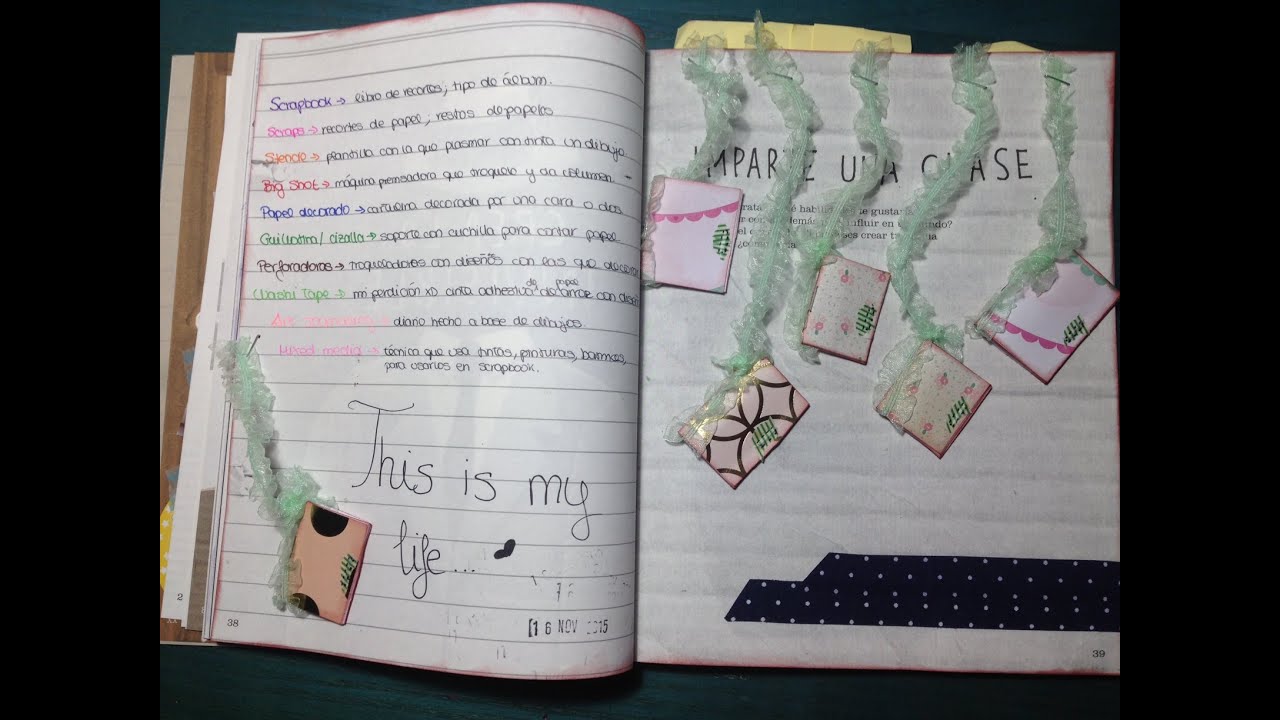 Scrapbook → libro de recortes, tipo de álbum.
Scraps → recortes de papel, restos de papeles
Stencil → plantilla con la que plasmar con tinta un dibujo.
Big Shot → máquina prensadora que troquela y da volumen.
Papel decorado → cartulina decorada por una cara o dos
Guillotina / cizalla → soporte con cuchilla para cortar papel
Perforadoras → troqueladoras con diseños con las que decorar
Washi Tape → mi perdición XD cinta adhesiva de papel de arroz con
Art journaling → diario hecho a base de dibujos.
Mixed media → técnica que usa tintas, pinturas, barnices,
para usarlos en scrapbook.
This is my
life...
16 NOV 2015
38
2
IMPARTE UNA CLASE
39